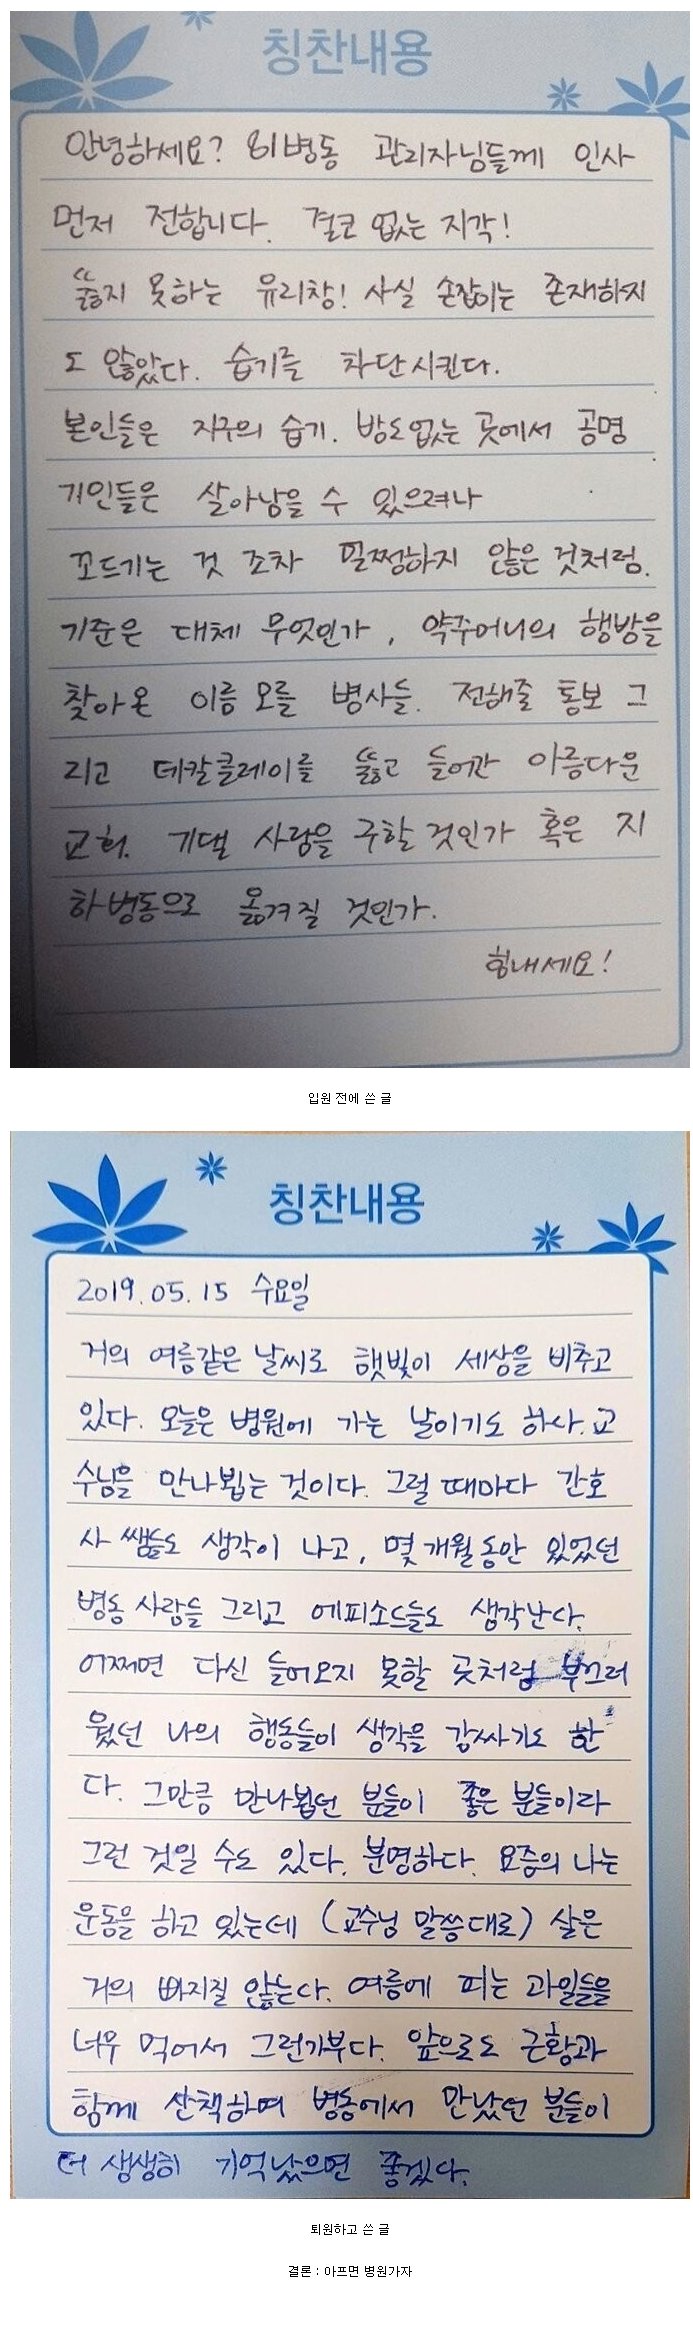 칭찬내용
안녕하세요? 81병동 관리자님들께 인사
먼저 전합니다. 결코 없는 지각!
뚫지 못하는 유리창! 사실 손잡이는 존재하지
도 않았다. 습기를 차단시킨다.
본인들은 지구의 습기. 방도없는 곳에서 공명
기인들은 살아남을 수 있으려나
꼬드기는 것 조차 멀쩡하지 않은 것처럼.
기준은 대체 무엇인가, 약주머니의 행방을
찾아온 이름 모를 병사들. 전해줄 통보 그
리고 데칼클레이를 뚫고 들어간 아름다운
교회. 기댈 사람을 구할 것인가 혹은 지
하병동으로 옮겨질 것인가.
힘내세요!
입원 전에 쓴 글
칭찬내용
2019.05.15 수요일
거의 여름같은 날씨로 햇빛이 세상을 비추고
있다. 오늘은 병원에 가는 날이기도 하다. 교
수님을 만나뵙는 것이다. 그럴 때마다 간호
사 쌤들도 생각이 나고, 몇 개월동안 있었던
병동 사람들 그리고 에피소드들도 생각난다.
어쩌면 다신 들어오지 못할 곳처럼 부끄러
웠던 나의 행동들이 생각을 감싸기도 한
다. 그만큼 만나뵙던 분들이 좋은 분들이라
그런 것일 수도 있다. 분명하다. 요즘의 나는
운동을 하고 있는데 (교수님 말씀대로) 살은
거의 빠지질 않는다. 여름에 피는 과일들을
너무 먹어서 그런가부다. 앞으로도 근황과
함께 산책하며 병동에서 만났던 분들이
더 생생히 기억났으면 좋겠다.
퇴원하고 쓴 글
결론 : 아프면 병원가자